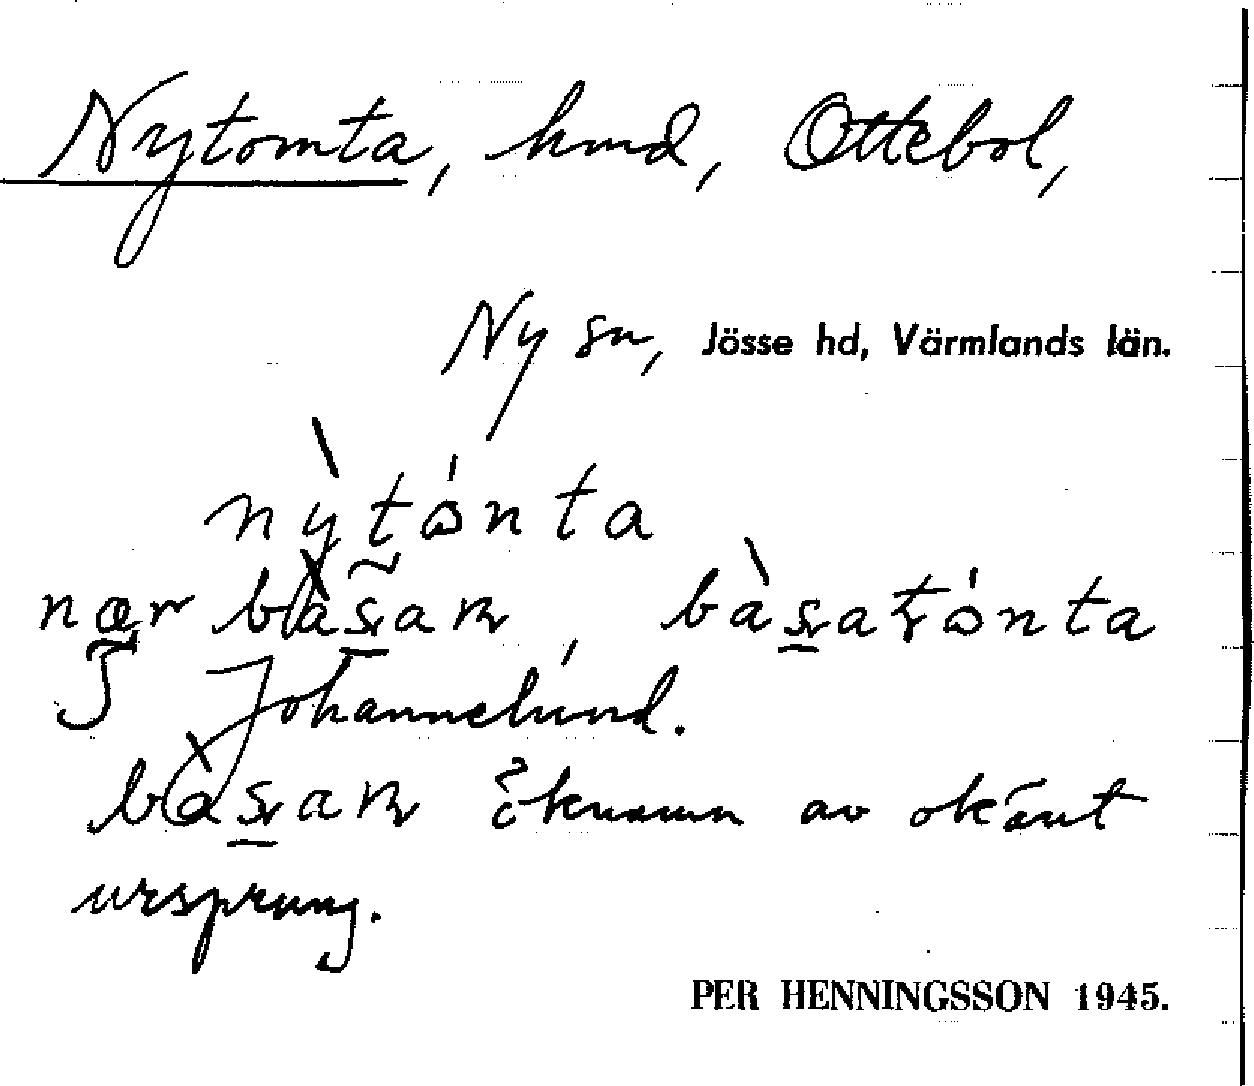 Nytomta, hmd, Ottebol,
Ny sn, Jösse hd, Värmlands län.
nỳtɷ́nta
nær bàsan, bàsatɷ́nta
Johannelund.
bàsan öknamn av okänt
ursprung.
PER HENNINGSSON 1945.